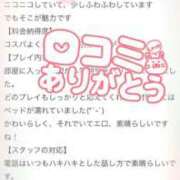 ニコニコしていて、少しふわふわしています
でもそこが魅力です
【料金納得度】
コスパよく
【プレイ内
部屋に入っ
口コミ
ありがとう
どのプレイもしっかりと応えてく
ベッドが濡れていました(*´-`)
かわいらしく、それでいてエロ、素晴らしいです
【スタッフの対応】
電話はいつもハキハキとした話し方で素晴らしいです